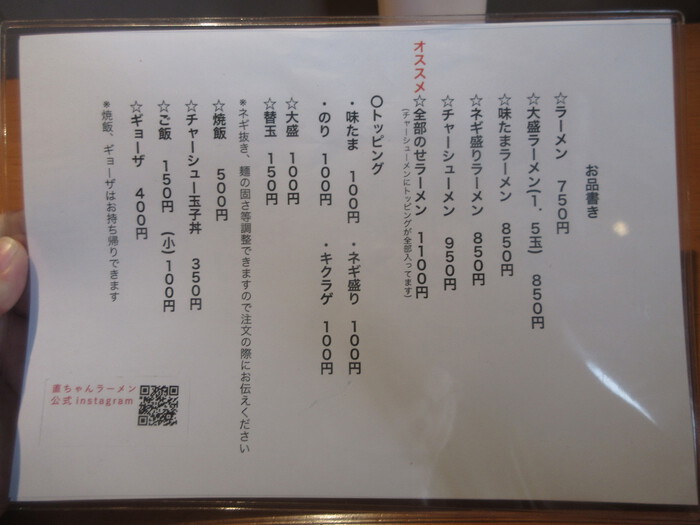 お品書き
☆ラーメン 750円
☆大盛ラーメン(1.5玉) 850円
☆味たまラーメン 850円
☆ネギ盛りラーメン 850円
☆チャーシューメン 950円
オススメ☆全部のせラーメン 1100円
(チャーシューメンにトッピングが全部入ってます)
〇トッピング
・味たま 100円 ・ネギ盛り 100円
・のり 100円 ・キクラゲ 100円
☆大盛 100円
☆替玉 150円
※ネギ抜き、麺の固さ等調整できますので注文の際にお伝えください
☆焼飯 500円
☆チャーシュー玉子丼 350円
☆ご飯 150円 (小)100円
☆ギョーザ 400円
※焼飯、ギョーザはお持ち帰りできます
直ちゃんラーメン
公式instagram